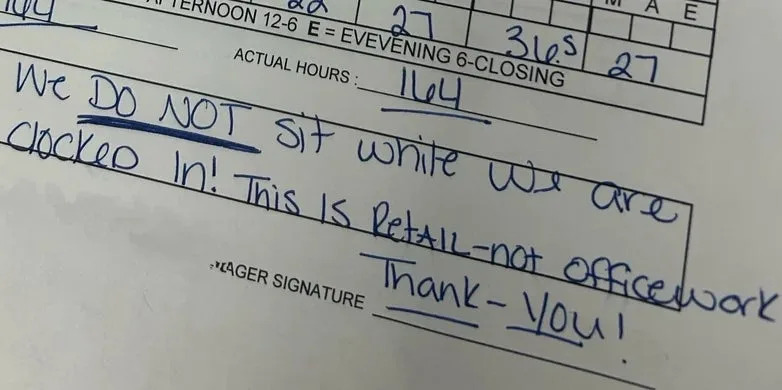 22 27 36.5 27
M A E
AFTERNOON 12-6 E = EVEVENING 6-CLOSING
164 ACTUAL HOURS: 164
We DO NOT sit while we are
clocked In! This Is Retail-not officework
Thank-You!
SIGNATURE